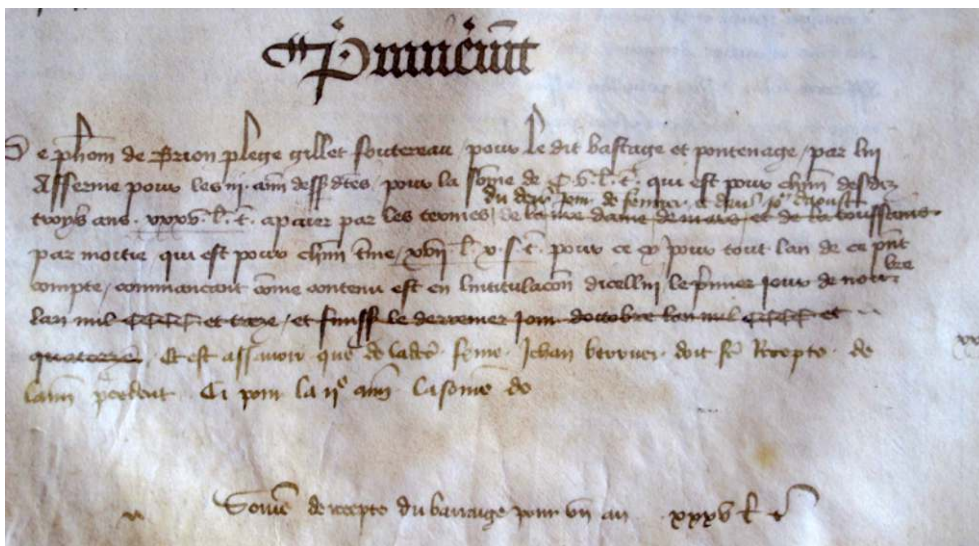 Premierement
De phom de Brion plege gillet soutereau pour Le dit bastage et pontenage par lui
Afferme pour les iij ann dessdtes pour la some de C v l t qui est pour chun desdiz
du derr jour de et
troys ans xxxv l t apaier par les termes de la nre dame de mars et de la toussains
par moitie qui est pour chun tme xvij l x s t pour ce pour tout lan de ce pnt
compte commancant come contenu est en lintitulacon dicellui le pmier jour de nov
bre
lan mil et treze et finiss le derrenier jour doctobre lan mil et
quatorze Et est assavoir que de ladce ferme Jehan doit fe Recepte de
lann pcedent Ci pour la ije ann La some de
Some de recepte du barrage pour un an xxxv l t